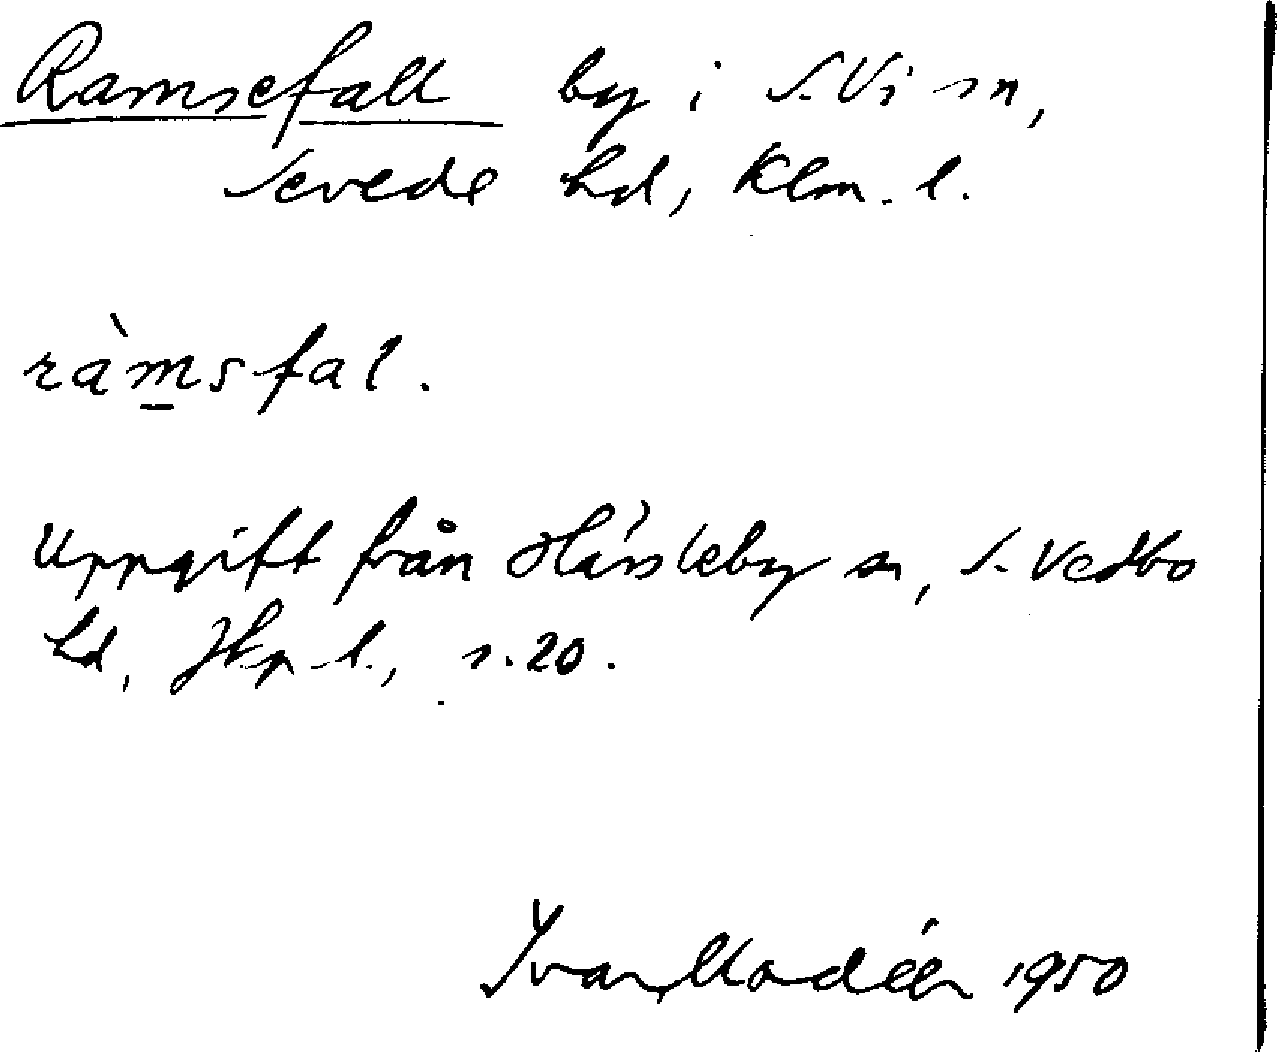 Ramsefall by i S. Vi sn,
Sevede hd, Klm. l.
ràmsfal.
Uppgift från Hässleby sn, S. Vedbo
hd, Jkp. l., s. 20.
Ivar Modéer 1950